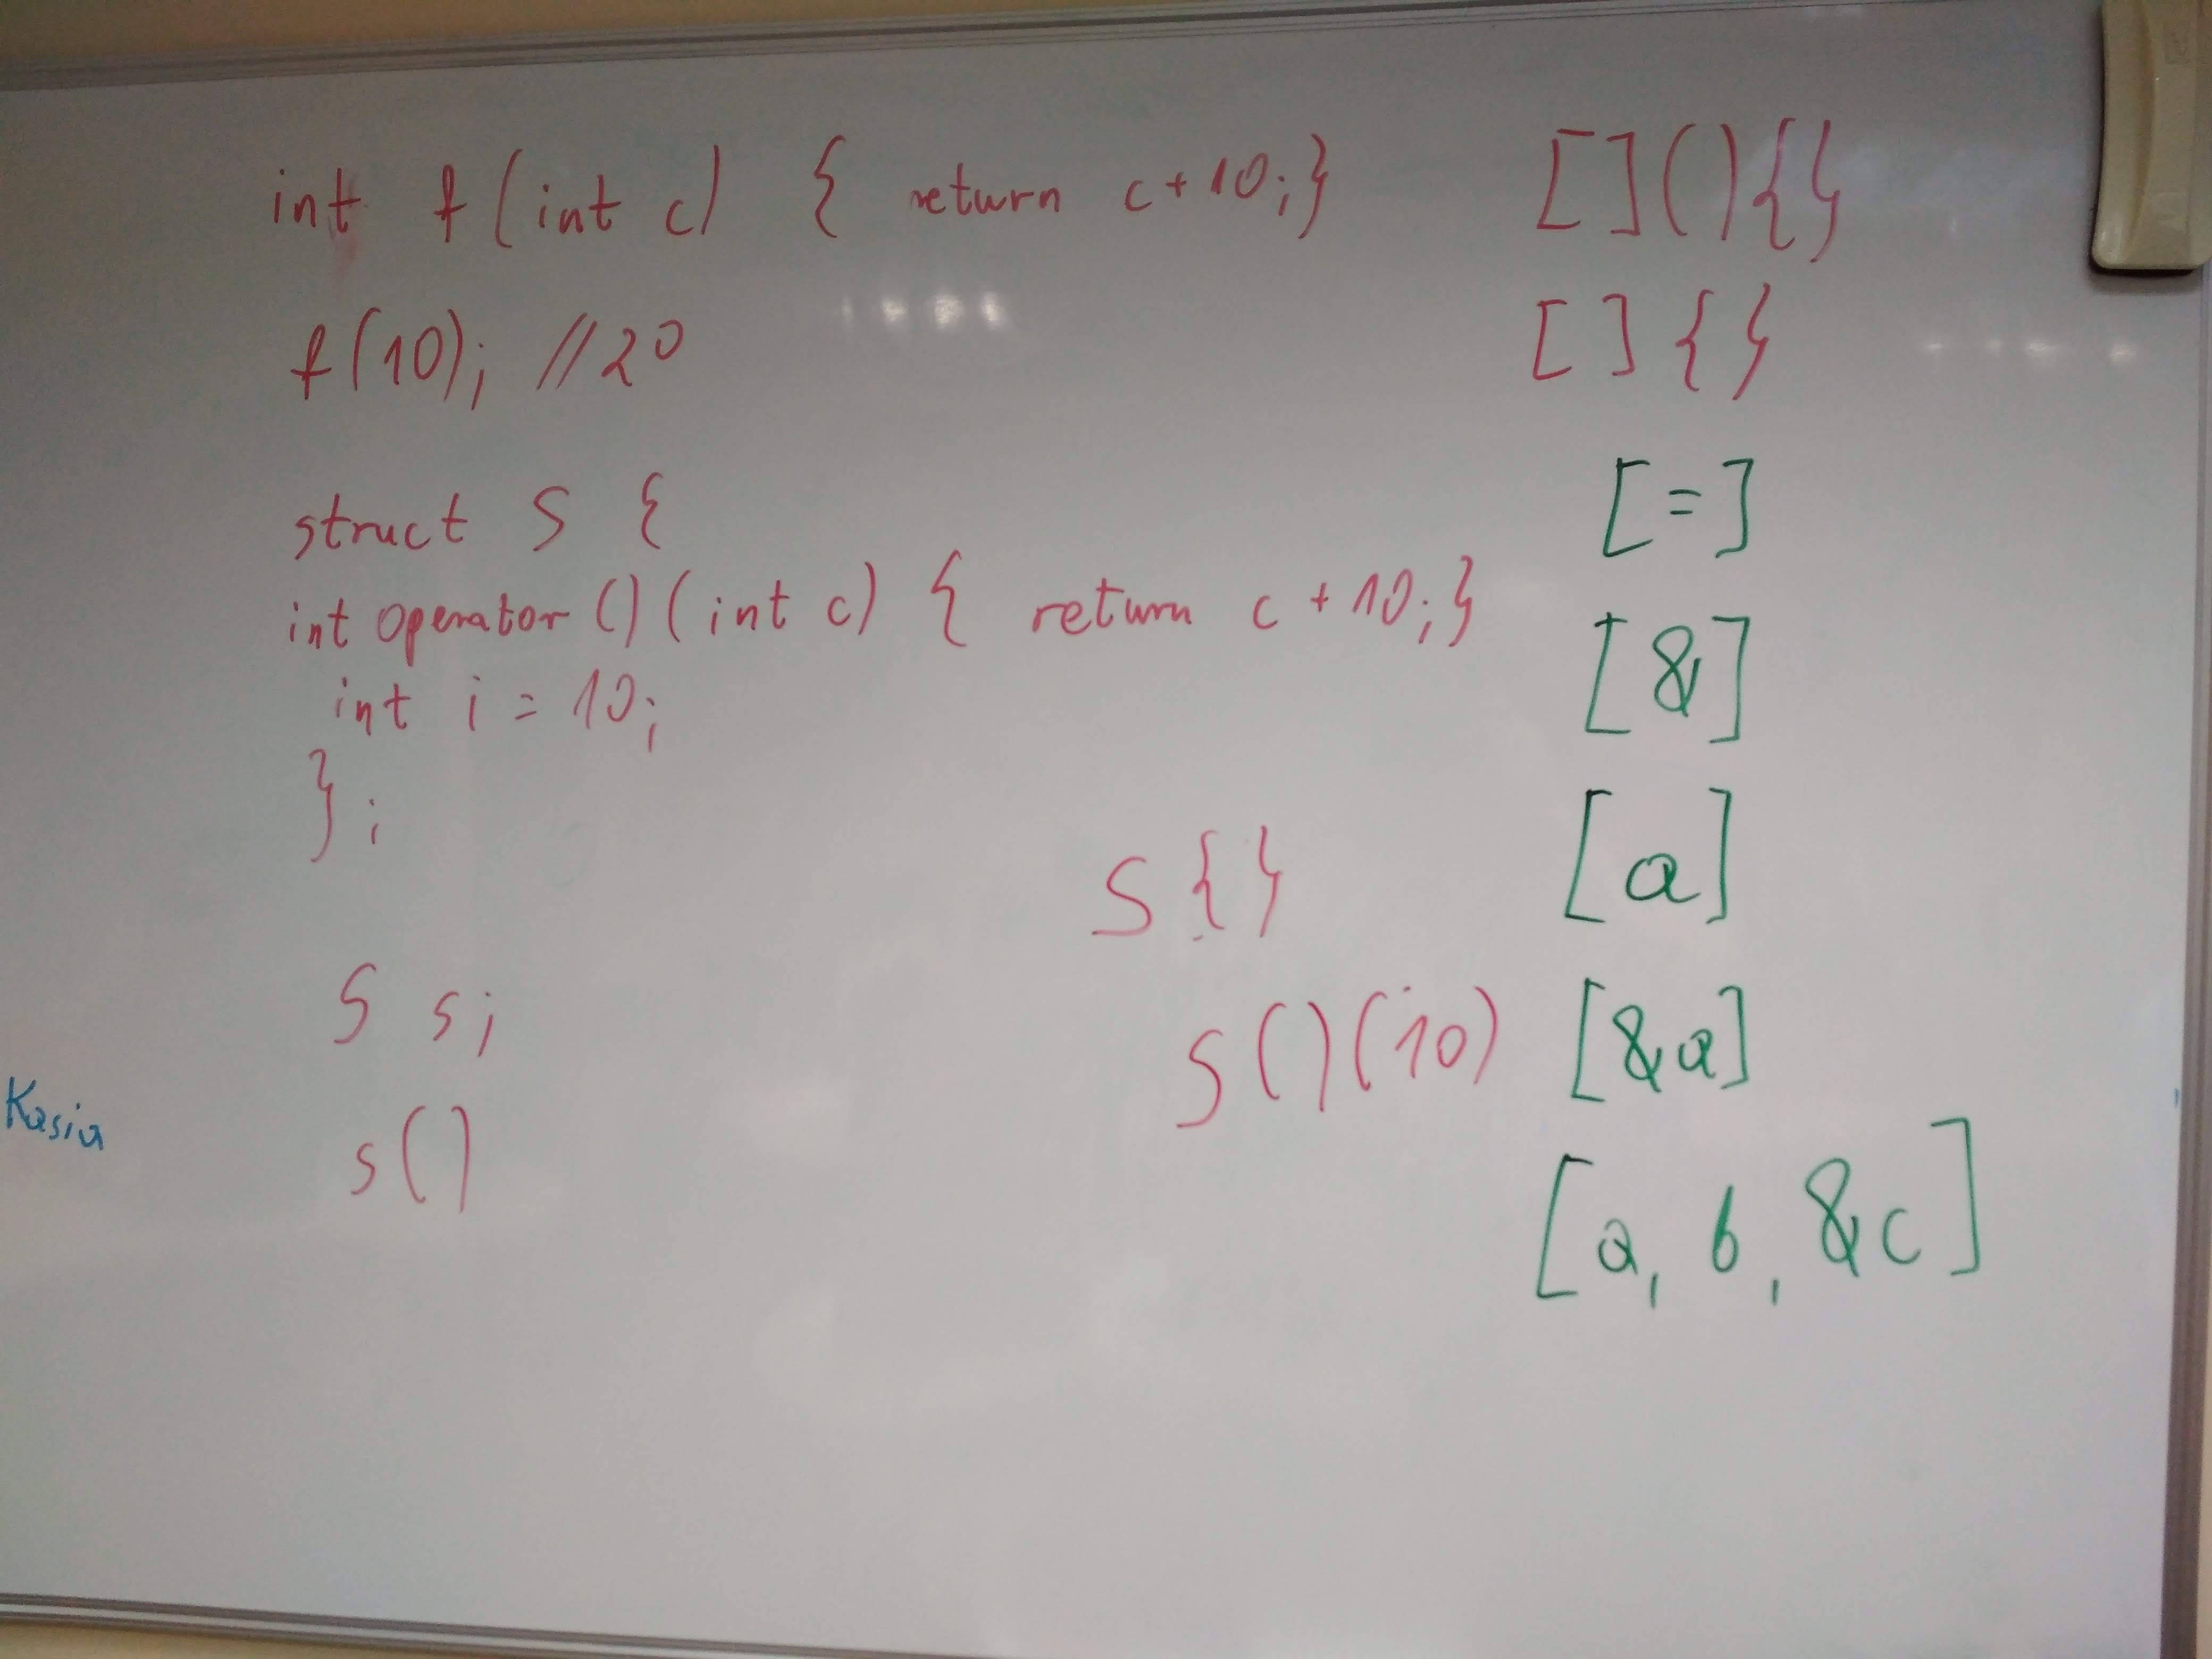 int f(int c) { return c+10;}
f(10); //20
struct S {
int operator()(int c) { return c + 10;}
int i = 10;
};
S s;
s()
S{}
S()(10)
[](){}
[]{}
[=]
[&]
[a]
[&a]
[a, b, &c]
Kasia